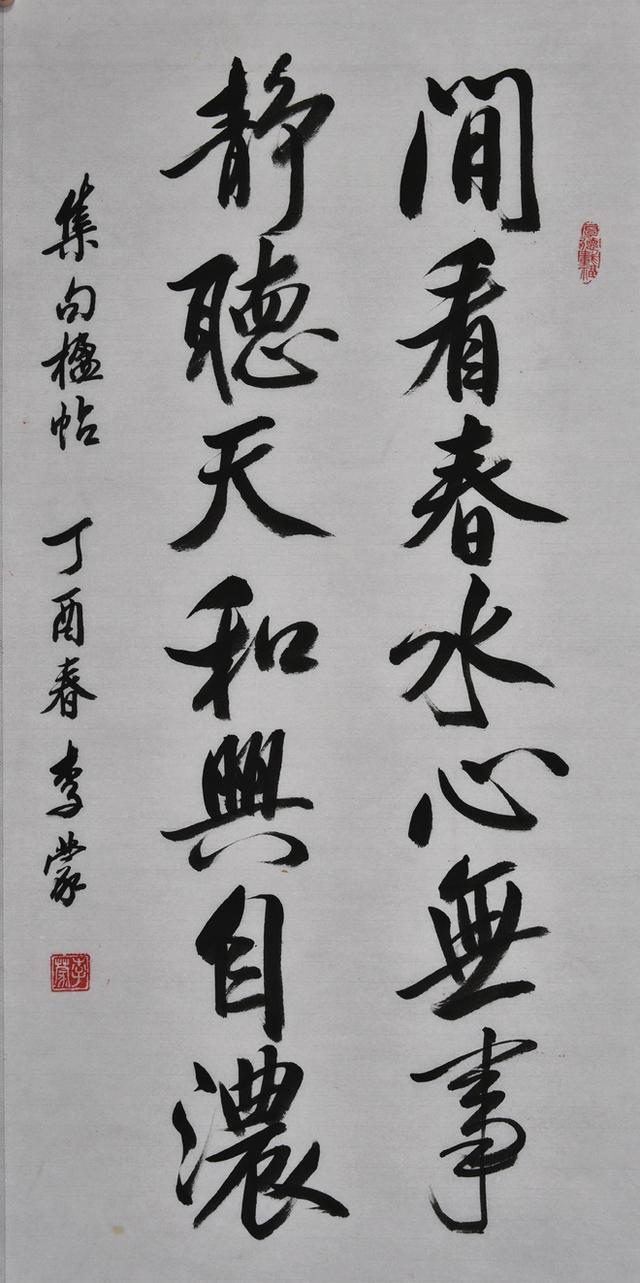 閒看春水心無事
靜聽天和興自濃
集句楹帖 丁酉春 李蒙
李蒙